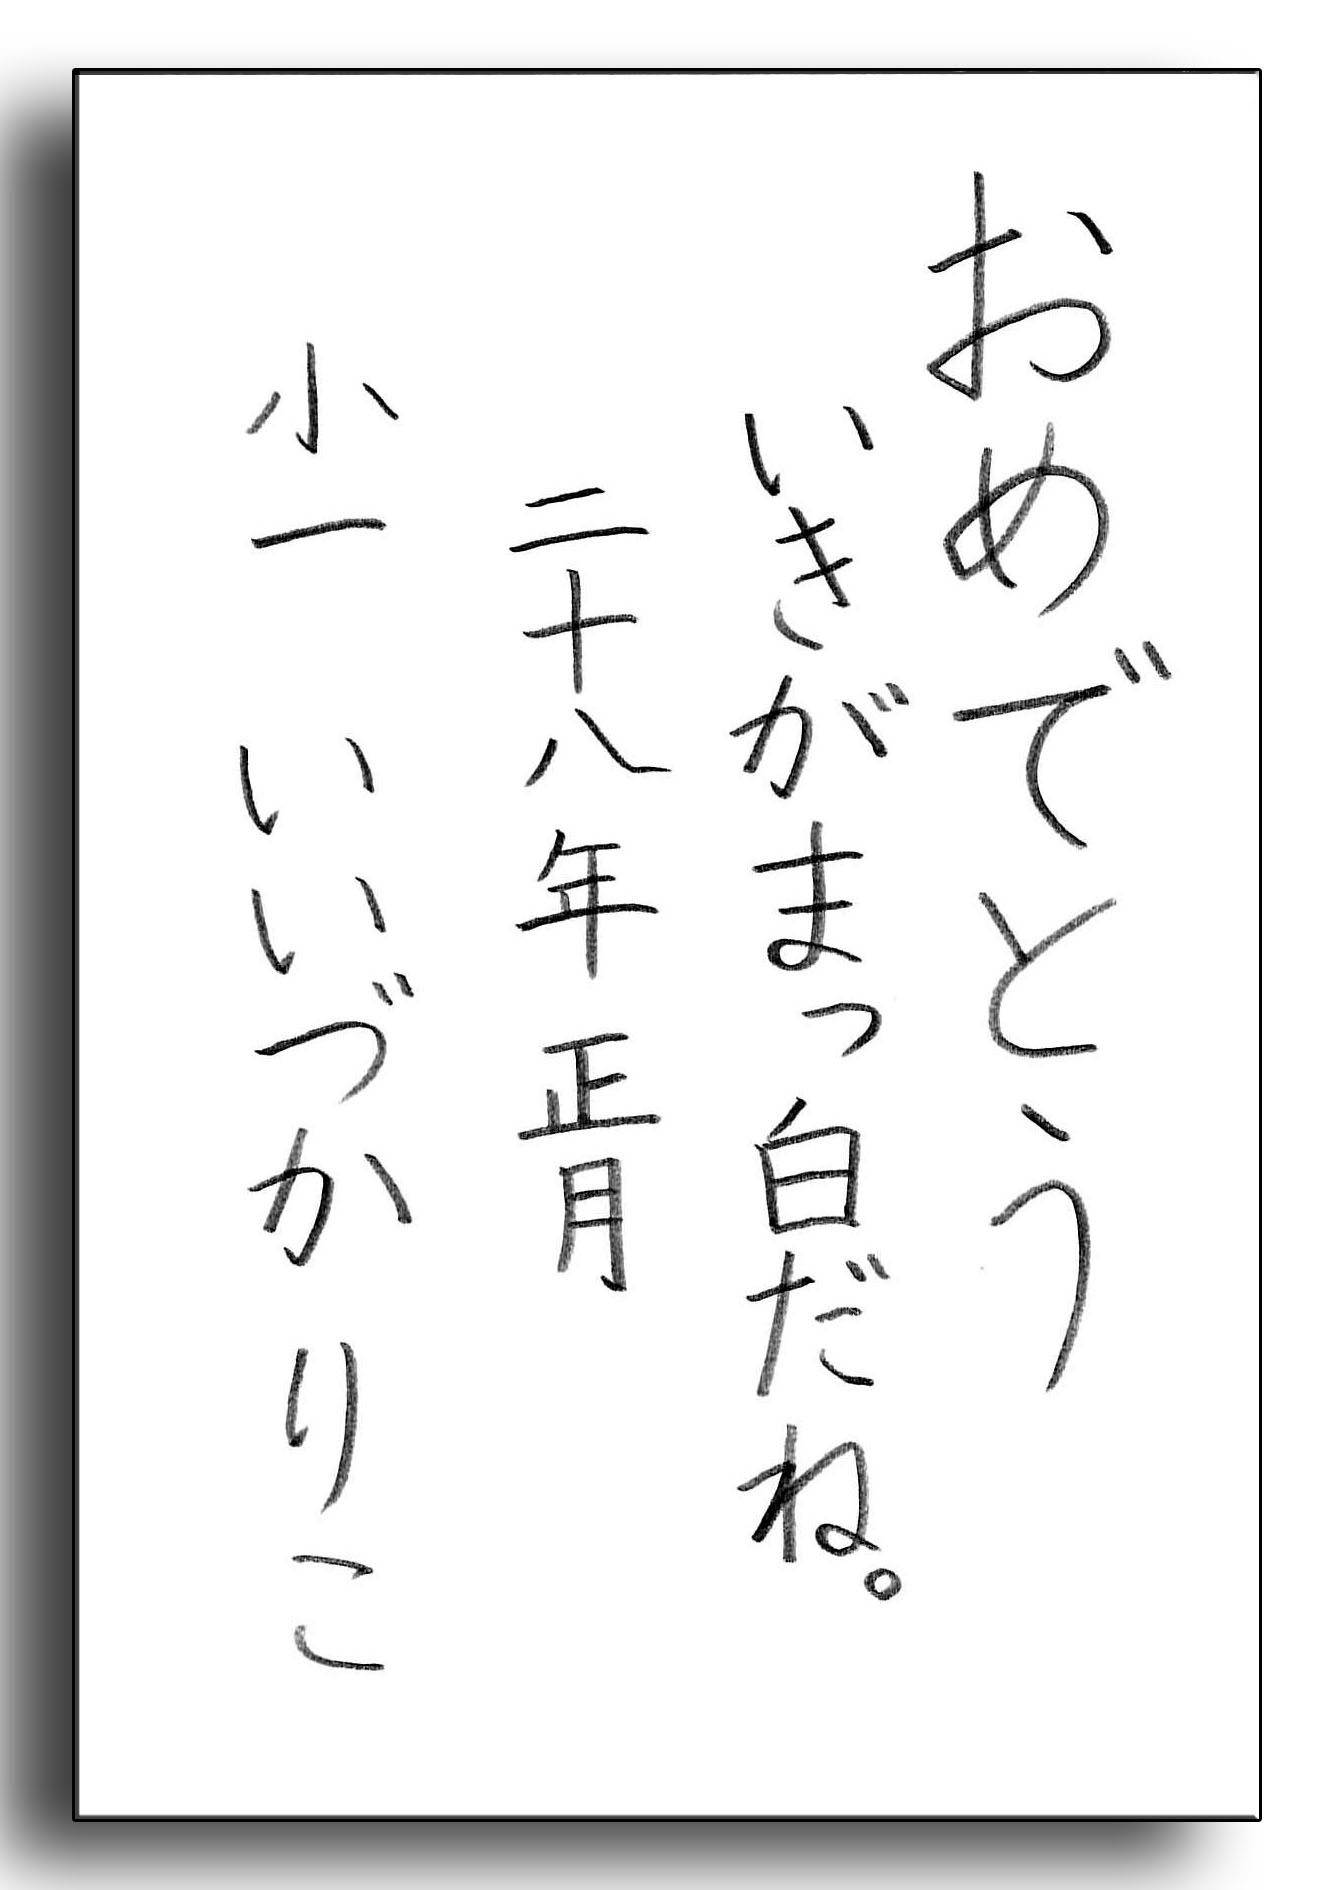 おめでとう
いきがまっ白だね。
二十八年 正月
小一 いいづか りこ